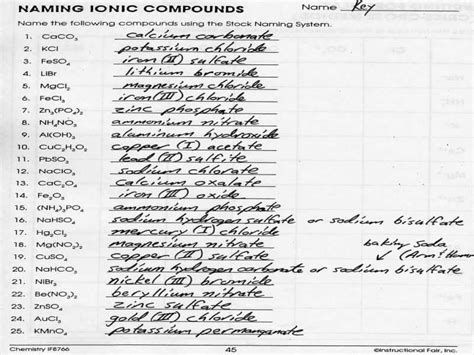 NAMING IONIC COMPOUNDS Name Key
Name the following compounds using the Stock Naming System.
1. CaCO₃ calcium carbonate
2. KCl potassium chloride
3. FeSO₄ iron (II) sulfate
4. LiBr lithium bromide
5. MgCl₂ magnesium chloride
6. FeCl₃ iron (III) chloride
7. Zn₃(PO₄)₂ zinc phosphate
8. NH₄NO₃ ammonium nitrate
9. Al(OH)₃ aluminum hydroxide
10. CuC₂H₃O₂ copper (I) acetate
11. PbSO₃ lead (II) sulfite
12. NaClO₃ sodium chlorate
13. CaC₂O₄ calcium oxalate
14. Fe₂O₃ iron (III) oxide
15. (NH₄)₃PO₄ ammonium phosphate
16. NaHSO₄ sodium hydrogen sulfate or sodium bisulfate
17. Hg₂Cl₂ mercury (I) chloride
18. Mg(NO₃)₂ magnesium nitrate baking Soda
19. CuSO₄ copper (II) sulfate (Arm & Hammer
20. NaHCO₃ sodium hydrogen carbonate or sodium
21. NiBr₃ nickel (III) bromide
22. Be(NO₃)₂ beryllium nitrate
23. ZnSO₄ zinc sulfate
24. AuCl₃ gold (III) chloride
25. KMnO₄ potassium permanganate
Chemistry IF8766 45 ©Instructional Fair, Inc.